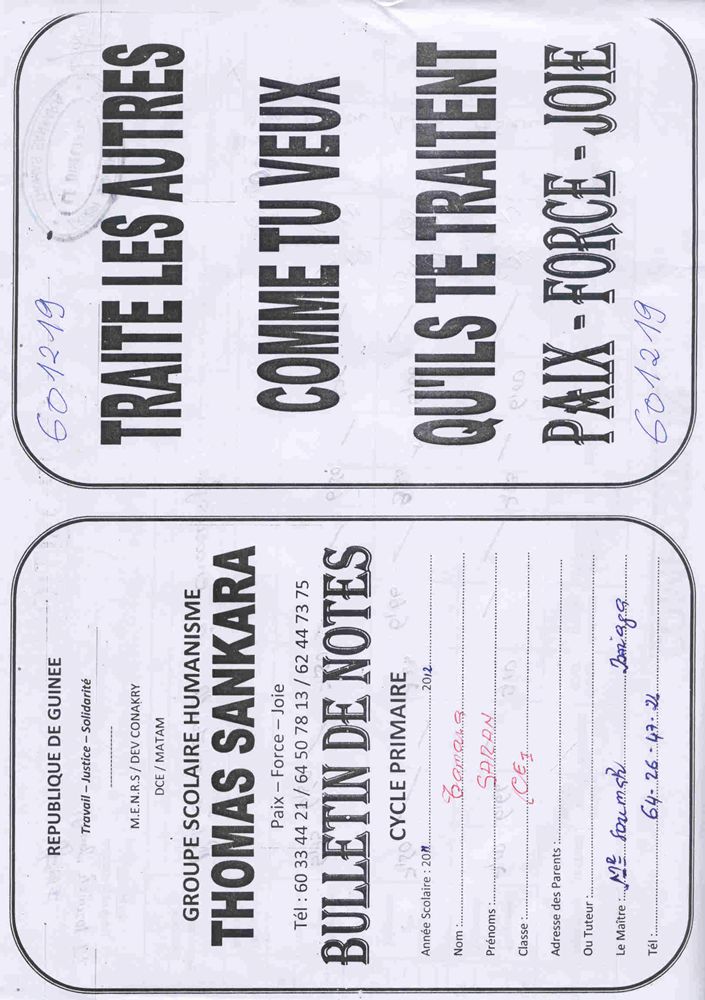 REPUBLIQUE DE GUINEE
Travail – Justice – Solidarité
M.E.N.R.S / DEV CONAKRY
DCE / MATAM
GROUPE SCOLAIRE HUMANISME
THOMAS SANKARA
Paix – Force – Joie
Tél : 60 33 44 21 / 64 50 78 13 / 62 44 73 75
BULLETIN DE NOTES
CYCLE PRIMAIRE
Année Scolaire : 2011 2012
Nom : Camara
Prénoms : SARAN
Classe : CE1
Adresse des Parents :
Ou Tuteur :
Le Maître : Mr Soumah
Tél : 64-26-47-26
601219
TRAITE LES AUTRES
COMME TU VEUX
QU'ILS TE TRAITENT
PAIX - FORCE - JOIE
601219